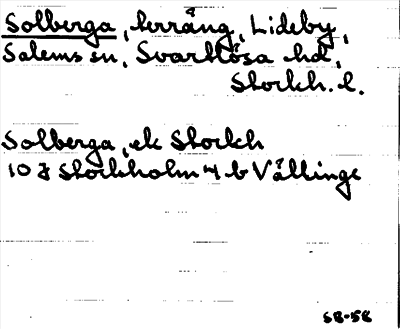 Solberga, terräng, Lideby,
Salems sn, Svartlösa hd,
Stockh. l.
Solberga, ek Stockh
10 I Stockholm 4 b Vällinge
S8-58